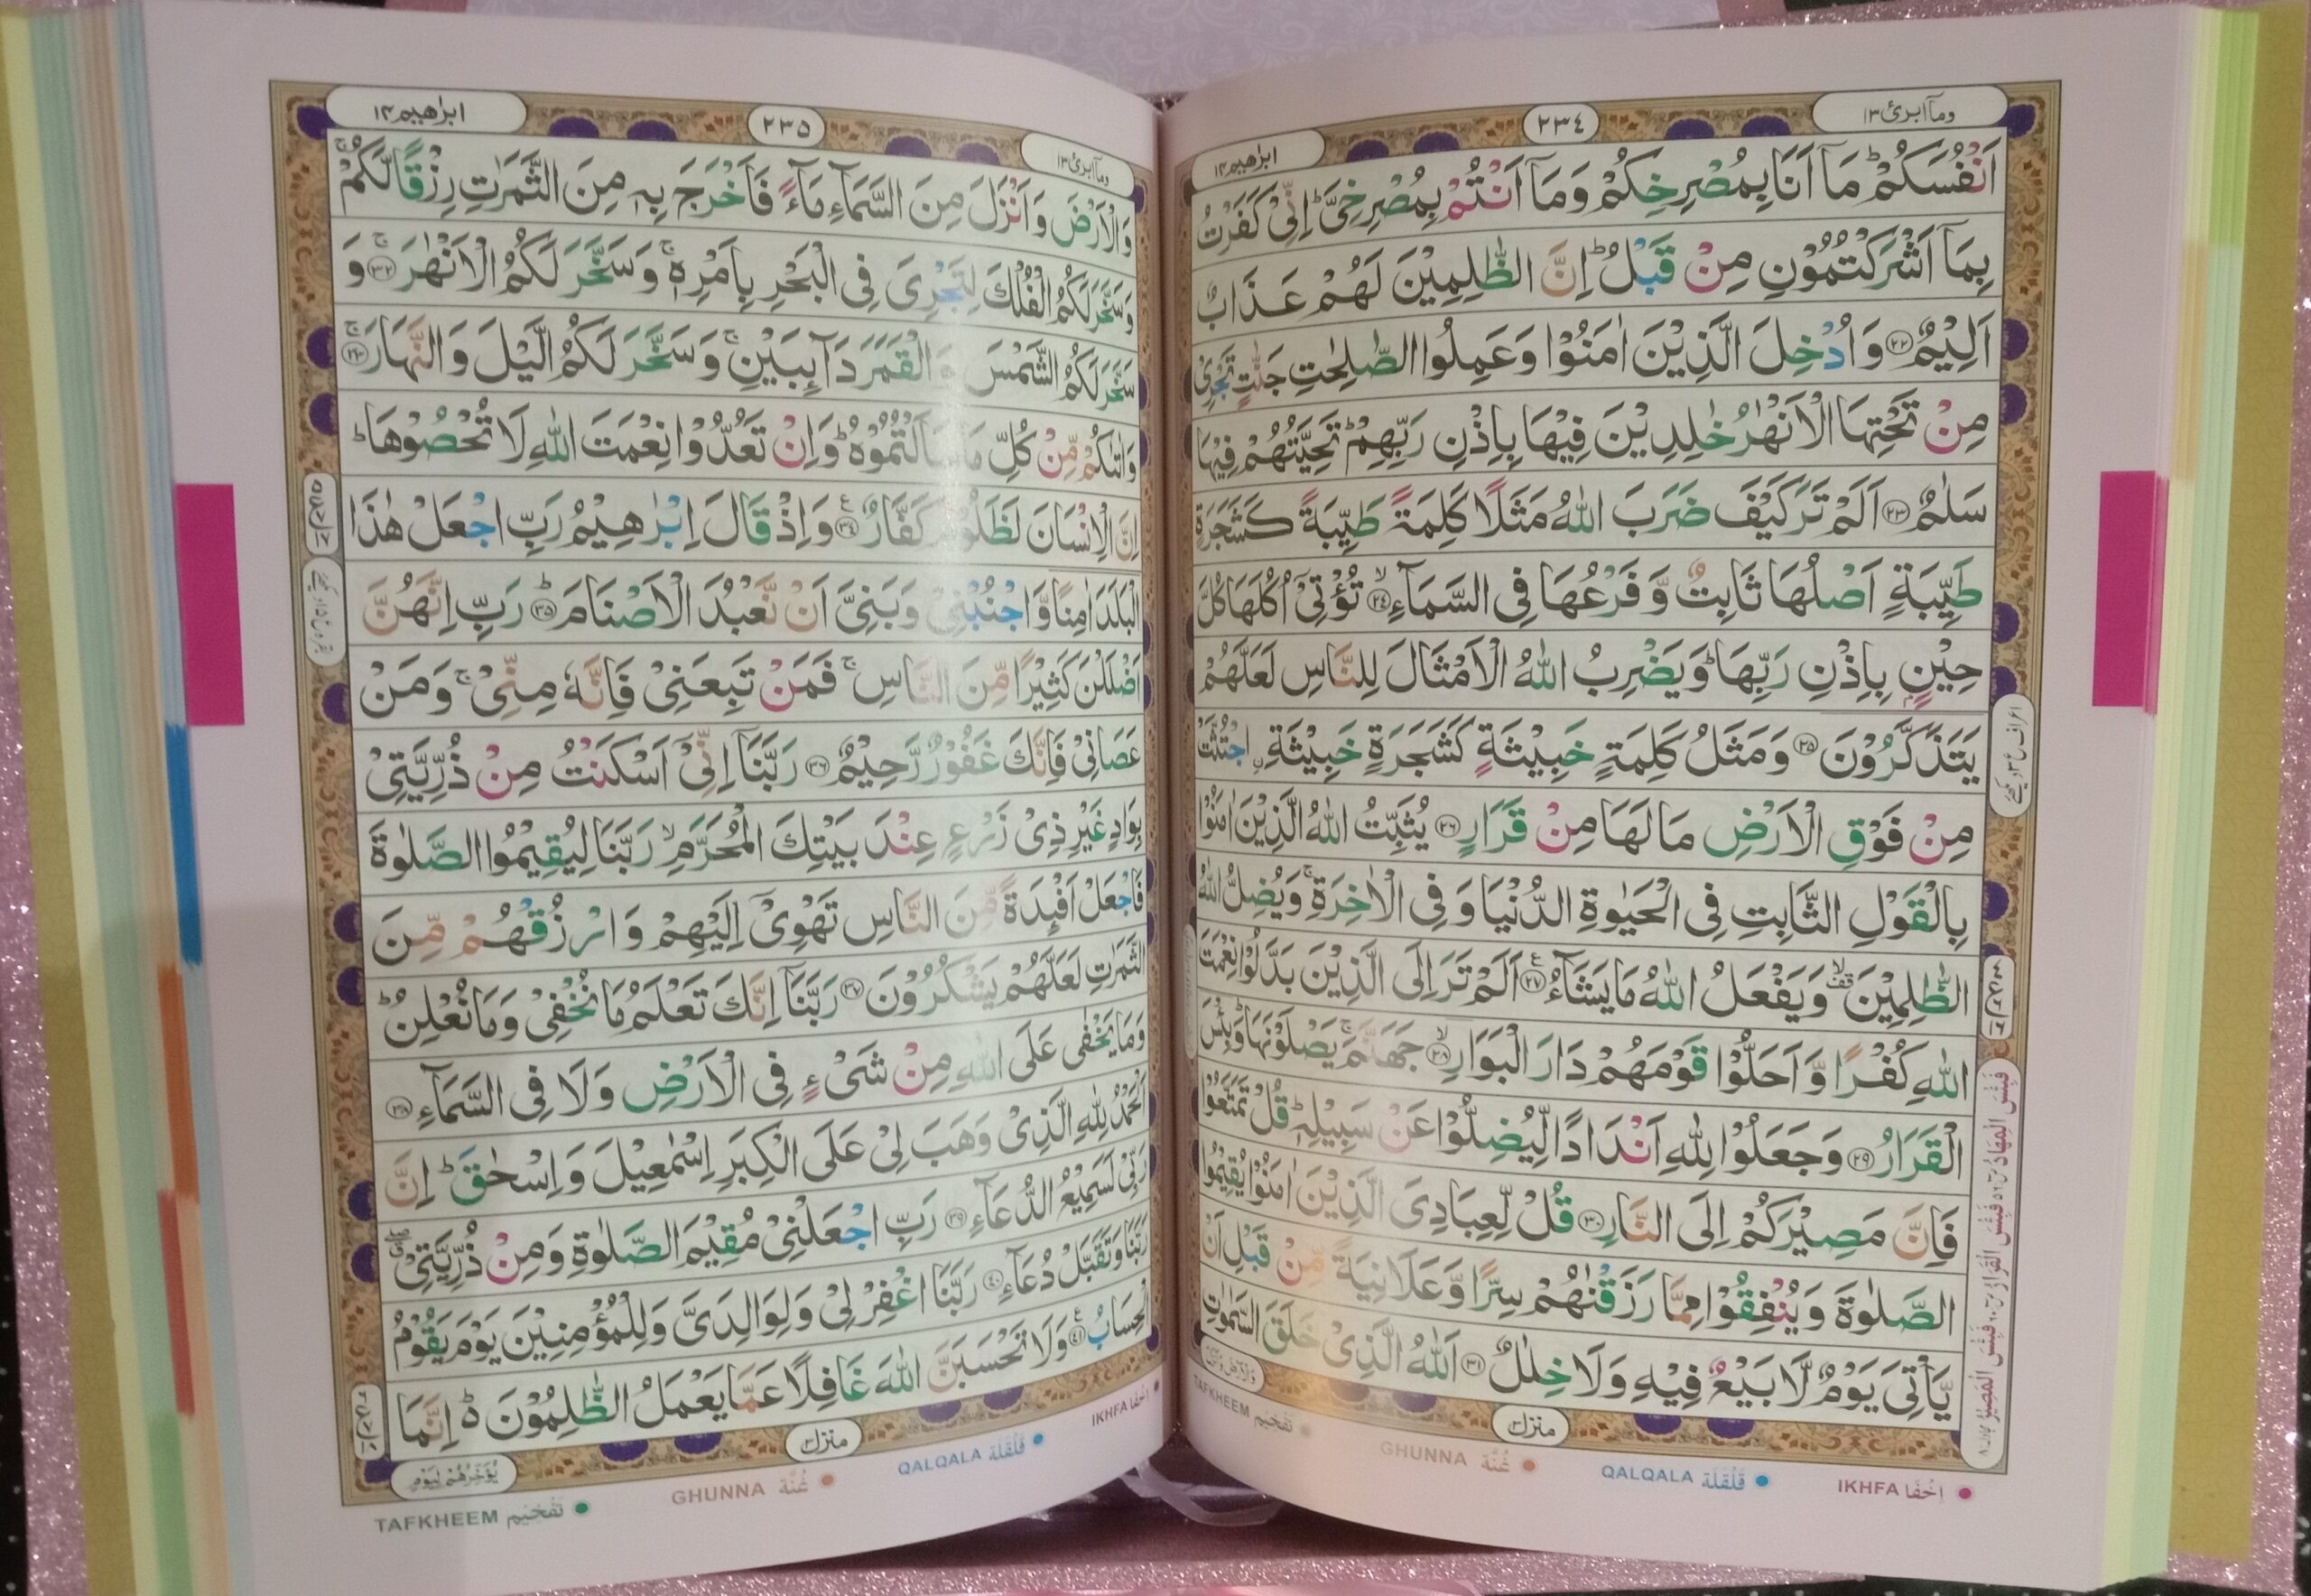 وماۤ ابرئ ١٣
٢٣٤
ابرٰهيم ١٤
اَنْفُسَكُمْ ؕ مَاۤ اَنَا بِمُصْرِخِكُمْ وَمَاۤ اَنْتُمْ بِمُصْرِخِيَّ ؕ اِنِّىْ كَفَرْتُ
بِمَاۤ اَشْرَكْتُمُوْنِ مِنْ قَبْلُ ؕ اِنَّ الظّٰلِمِيْنَ لَهُمْ عَذَابٌ
اَلِيْمٌ ﴿٢٢﴾ وَاُدْخِلَ الَّذِيْنَ اٰمَنُوْا وَعَمِلُوا الصّٰلِحٰتِ جَنّٰتٍ تَجْرِىْ
مِنْ تَحْتِهَا الْاَنْهٰرُ خٰلِدِيْنَ فِيْهَا بِاِذْنِ رَبِّهِمْ ؕ تَحِيَّتُهُمْ فِيْهَا
سَلٰمٌ ﴿٢٣﴾ اَلَمْ تَرَ كَيْفَ ضَرَبَ اللّٰهُ مَثَلًا كَلِمَةً طَيِّبَةً كَشَجَرَةٍ
طَيِّبَةٍ اَصْلُهَا ثَابِتٌ وَّفَرْعُهَا فِى السَّمَآءِ ﴿٢٤﴾ تُؤْتِىْۤ اُكُلَهَا كُلَّ
حِيْنٍۭ بِاِذْنِ رَبِّهَا ؕ وَيَضْرِبُ اللّٰهُ الْاَمْثَالَ لِلنَّاسِ لَعَلَّهُمْ
يَتَذَكَّرُوْنَ ﴿٢٥﴾ وَمَثَلُ كَلِمَةٍ خَبِيْثَةٍ كَشَجَرَةٍ خَبِيْثَةِ ۨاجْتُثَّتْ
مِنْ فَوْقِ الْاَرْضِ مَا لَهَا مِنْ قَرَارٍ ﴿٢٦﴾ يُثَبِّتُ اللّٰهُ الَّذِيْنَ اٰمَنُوْا
بِالْقَوْلِ الثَّابِتِ فِى الْحَيٰوةِ الدُّنْيَا وَفِى الْاٰخِرَةِ ۚ وَيُضِلُّ اللّٰهُ
الظّٰلِمِيْنَ ۙ وَيَفْعَلُ اللّٰهُ مَا يَشَآءُ ﴿٢٧﴾ اَلَمْ تَرَ اِلَى الَّذِيْنَ بَدَّلُوْا نِعْمَتَ
اللّٰهِ كُفْرًا وَّاَحَلُّوْا قَوْمَهُمْ دَارَ الْبَوَارِ ﴿٢٨﴾ جَهَنَّمَ ۚ يَصْلَوْنَهَا ؕ وَبِئْسَ
الْقَرَارُ ﴿٢٩﴾ وَجَعَلُوْا لِلّٰهِ اَنْدَادًا لِّيُضِلُّوْا عَنْ سَبِيْلِهٖ ؕ قُلْ تَمَتَّعُوْا
فَاِنَّ مَصِيْرَكُمْ اِلَى النَّارِ ﴿٣٠﴾ قُلْ لِّعِبَادِىَ الَّذِيْنَ اٰمَنُوْا يُقِيْمُوا
الصَّلٰوةَ وَيُنْفِقُوْا مِمَّا رَزَقْنٰهُمْ سِرًّا وَّعَلَانِيَةً مِّنْ قَبْلِ اَنْ
يَّاْتِىَ يَوْمٌ لَّا بَيْعٌ فِيْهِ وَلَا خِلٰلٌ ﴿٣١﴾ اَللّٰهُ الَّذِىْ خَلَقَ السَّمٰوٰتِ
منزل ٣
IKHFA اخفا
QALQALA قَلْقَلَة
GHUNNA غُنَّة
TAFKHEEM تَفْخِيم
وماۤ ابرئ ١٣
٢٣٥
ابرٰهيم ١٤
وَالْاَرْضَ وَاَنْزَلَ مِنَ السَّمَآءِ مَآءً فَاَخْرَجَ بِهٖ مِنَ الثَّمَرٰتِ رِزْقًا لَّكُمْ ۚ
وَسَخَّرَ لَكُمُ الْفُلْكَ لِتَجْرِىَ فِى الْبَحْرِ بِاَمْرِهٖ ۚ وَسَخَّرَ لَكُمُ الْاَنْهٰرَ ۚ ﴿٣٢﴾ وَ
سَخَّرَ لَكُمُ الشَّمْسَ وَالْقَمَرَ دَآئِبَيْنِ ۚ وَسَخَّرَ لَكُمُ الَّيْلَ وَالنَّهَارَ ۚ ﴿٣٣﴾
وَاٰتٰىكُمْ مِّنْ كُلِّ مَا سَاَلْتُمُوْهُ ؕ وَاِنْ تَعُدُّوْا نِعْمَتَ اللّٰهِ لَا تُحْصُوْهَا ؕ
اِنَّ الْاِنْسَانَ لَظَلُوْمٌ كَفَّارٌ ﴿٣٤﴾ وَاِذْ قَالَ اِبْرٰهِيْمُ رَبِّ اجْعَلْ هٰذَا
الْبَلَدَ اٰمِنًا وَّاجْنُبْنِىْ وَبَنِىَّ اَنْ نَّعْبُدَ الْاَصْنَامَ ؕ ﴿٣٥﴾ رَبِّ اِنَّهُنَّ
اَضْلَلْنَ كَثِيْرًا مِّنَ النَّاسِ ۚ فَمَنْ تَبِعَنِىْ فَاِنَّهٗ مِنِّىْ ۚ وَمَنْ
عَصَانِىْ فَاِنَّكَ غَفُوْرٌ رَّحِيْمٌ ﴿٣٦﴾ رَبَّنَاۤ اِنِّىْۤ اَسْكَنْتُ مِنْ ذُرِّيَّتِىْ
بِوَادٍ غَيْرِ ذِىْ زَرْعٍ عِنْدَ بَيْتِكَ الْمُحَرَّمِ ۙ رَبَّنَا لِيُقِيْمُوا الصَّلٰوةَ
فَاجْعَلْ اَفْئِدَةً مِّنَ النَّاسِ تَهْوِىْۤ اِلَيْهِمْ وَارْزُقْهُمْ مِّنَ
الثَّمَرٰتِ لَعَلَّهُمْ يَشْكُرُوْنَ ﴿٣٧﴾ رَبَّنَاۤ اِنَّكَ تَعْلَمُ مَا نُخْفِىْ وَمَا نُعْلِنُ ؕ
وَمَا يَخْفٰى عَلَى اللّٰهِ مِنْ شَىْءٍ فِى الْاَرْضِ وَلَا فِى السَّمَآءِ ﴿٣٨﴾
اَلْحَمْدُ لِلّٰهِ الَّذِىْ وَهَبَ لِىْ عَلَى الْكِبَرِ اِسْمٰعِيْلَ وَاِسْحٰقَ ؕ اِنَّ
رَبِّىْ لَسَمِيْعُ الدُّعَآءِ ﴿٣٩﴾ رَبِّ اجْعَلْنِىْ مُقِيْمَ الصَّلٰوةِ وَمِنْ ذُرِّيَّتِىْ
رَبَّنَا وَتَقَبَّلْ دُعَآءِ ﴿٤٠﴾ رَبَّنَا اغْفِرْ لِىْ وَلِوَالِدَىَّ وَلِلْمُؤْمِنِيْنَ يَوْمَ يَقُوْمُ
الْحِسَابُ ﴿٤١﴾ وَلَا تَحْسَبَنَّ اللّٰهَ غَافِلًا عَمَّا يَعْمَلُ الظّٰلِمُوْنَ ؕ اِنَّمَا
منزل ٣
يُؤَخِّرُهُمْ لِيَوْمٍ
IKHFA اخفا
QALQALA قَلْقَلَة
GHUNNA غُنَّة
TAFKHEEM تَفْخِيم